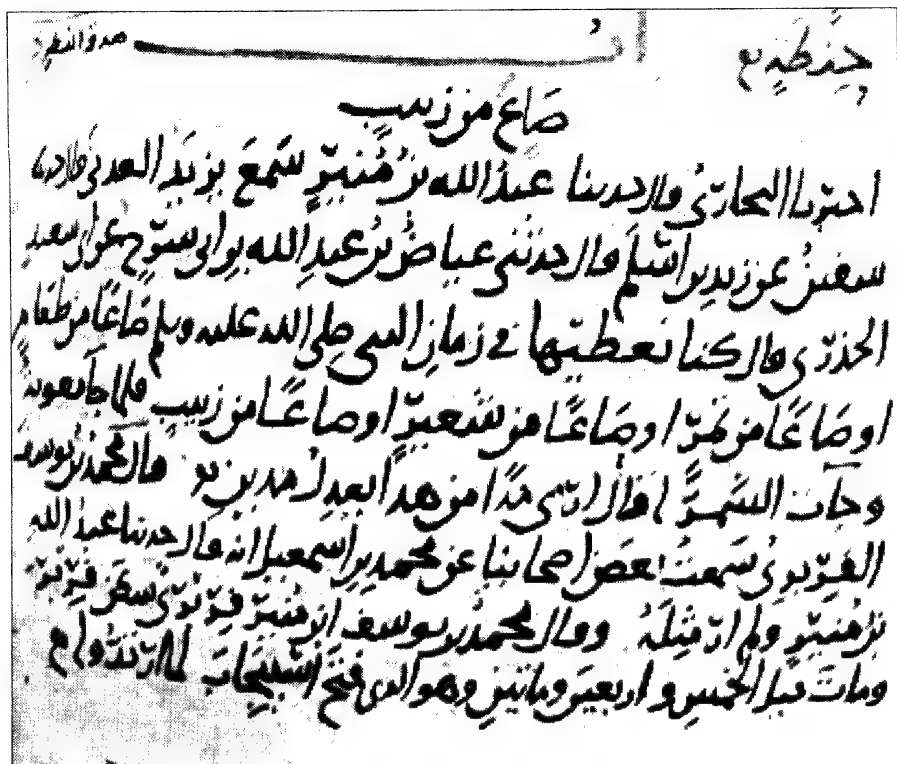 حنطة
باب صدقة الفطر
صَاعٌ من زبيب
اخبرنا البخاريُّ قال حدثنا عبدُ الله بنُ مُنيرٍ سَمعَ يزيدَ العدني قال حدثنا
سفينُ عن زيدِ بن اسلَمَ قال حدثني عياضُ بنُ عبدِ الله بن ابى سرْحٍ عن ابى سعيدٍ
الخدرى قال كنا نُعطيها فى زمانِ النبى صلى الله عليه وسلم صَاعًا من طعَامٍ
او صَاعًا من تمرٍ او صَاعًا من شَعيرٍ او صَاعًا من زبيبٍ فلما جآ معوية
وجآت السَّمرآ قال ارى مُدًّا من هذا يَعدِلُ مدين قال محمد بن يوسف
الفِرَبرى سَمعتُ بعضَ اصحابنا عن محمدِ بن اسمعيل انه قال حدثنا عبدُ الله
بنُ مُنيرٍ ولم ار مِثلَهُ وقال محمدُ بن يوسف ابن مُنيرٍ فِرَبْرىٌّ سكن فِرَبْرَ
وماتَ قبل الخمسِ واربعينَ ومائتين وهو الذى فتحَ